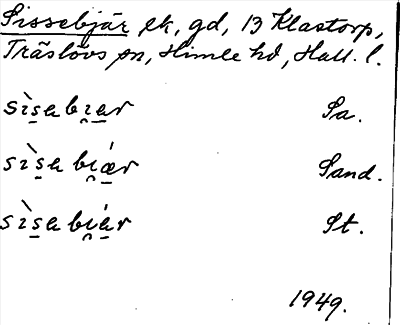 Sissebjär lk, gd, 13 Klastorp,
Träslövs sn, Himle hd, Hall. l.
sìsabi̯ar Sa.
sìsabi̯ár Sand.
sìsabi̯ár St.
1949.